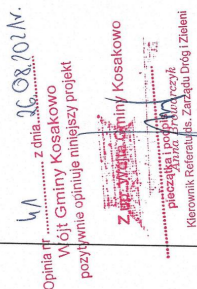 Opinia nr ........ z dnia 26.08.2021r.
Wójt Gminy Kosakowo
pozytywnie opiniuje niniejszy projekt
Z up. Wójta Gminy Kosakowo
pieczątka i podpis
Anna Browarczyk
Kierownik Referatu ds. Zarządu Dróg i Zieleni